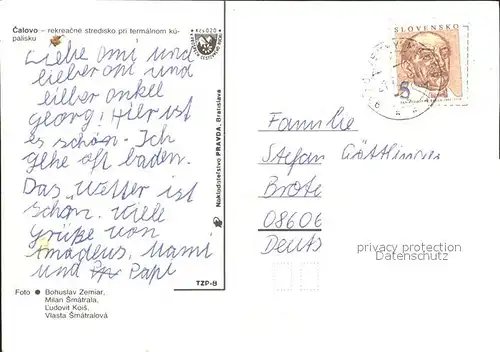 Čalovo – rekreačné stredisko pri termálnom kú-
palisku
Liebe Omi und
lieber Opi und
lieber onkel
georg! Hier ist
es schön. Ich
gehe oft baden.
Das Wetter ist
schön. Viele
Grüße von
Amadeus, Mami
und Papi
Foto ● Bohuslav Zemiar,
Milan Šmátrala,
Ľudovít Koiš,
Vlasta Šmátralová
Kčs 0,20
Nakladateľstvo PRAVDA, Bratislava
TZP-8
SLOVENSKO
5
Familie
Stefan
08606
privacy protection
Datenschutz